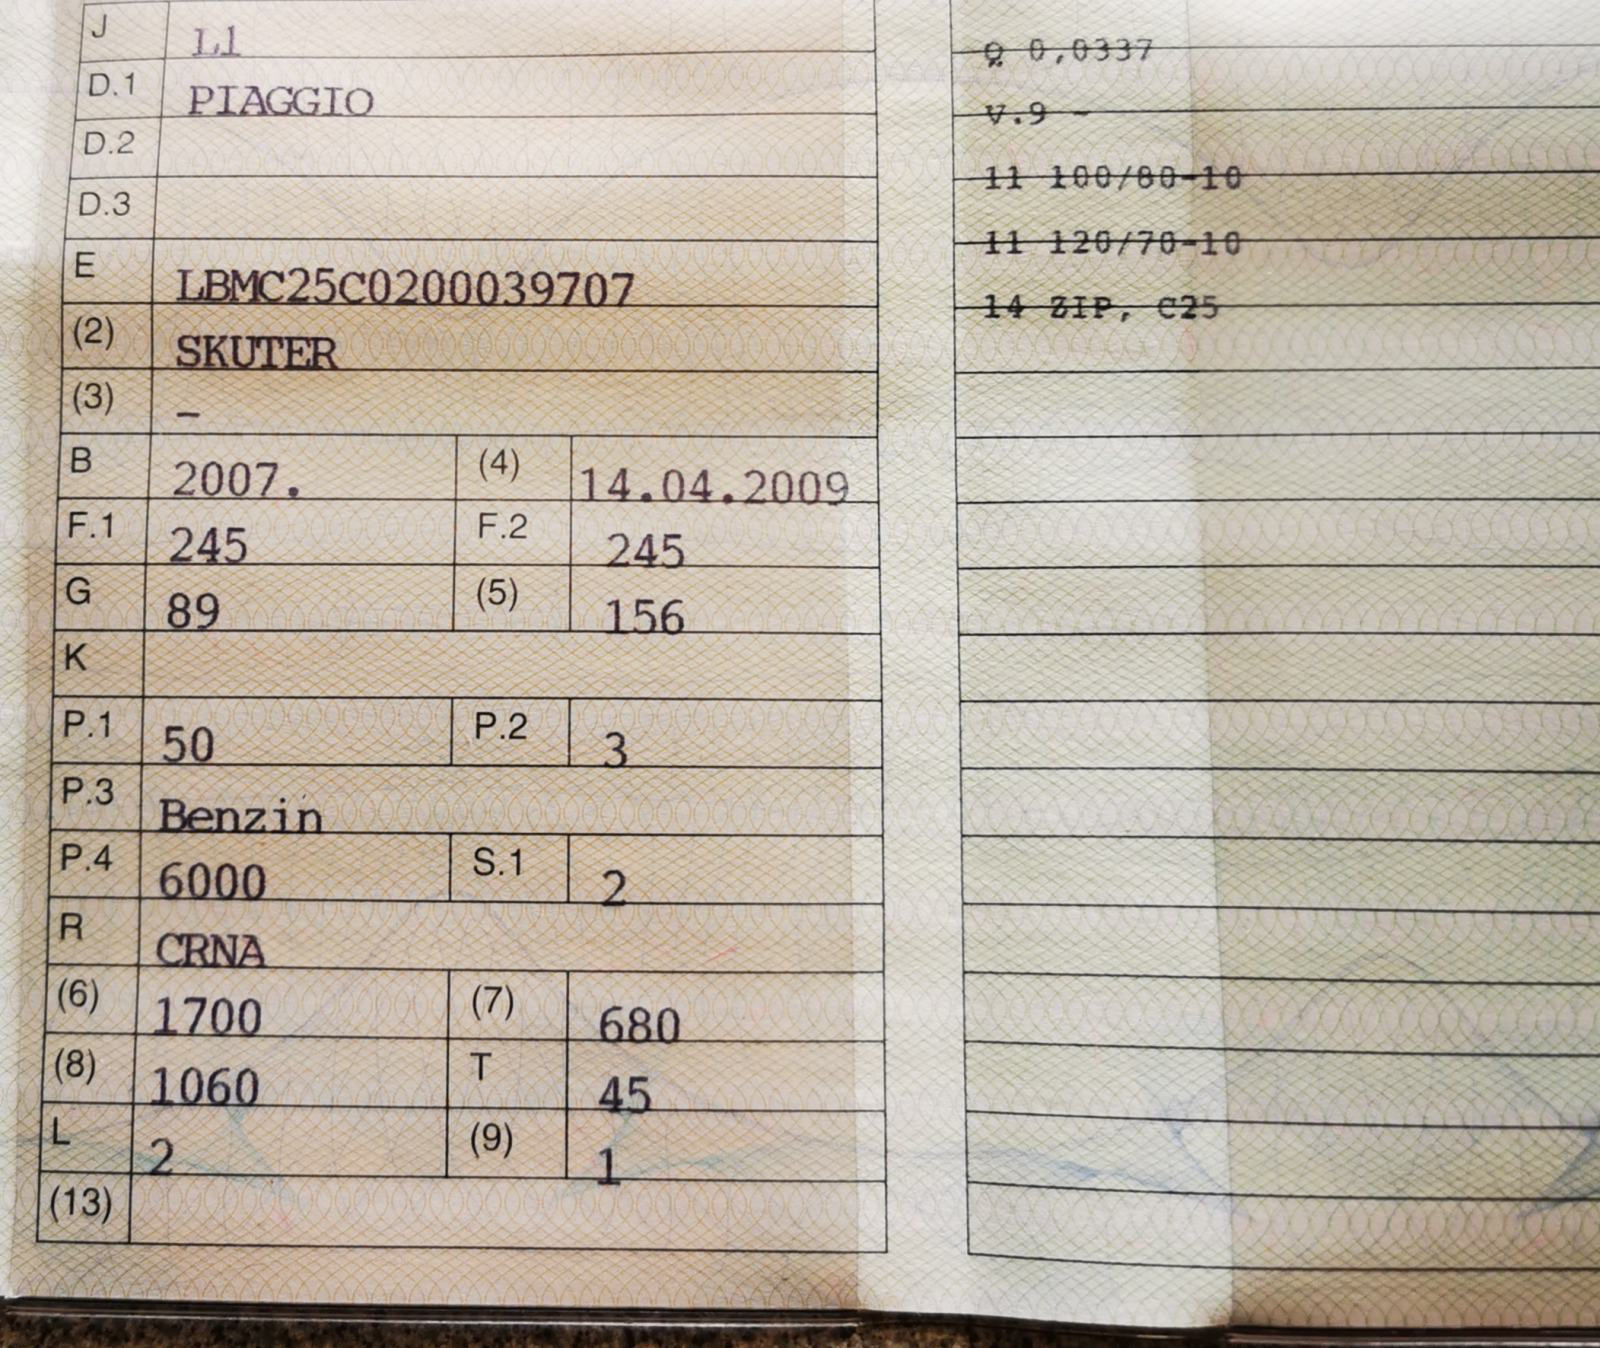 J L1
D.1 PIAGGIO
D.2
D.3
E LBMC25C0200039707
(2) SKUTER
(3) –
B 2007. (4) 14.04.2009
F.1 245 F.2 245
G 89 (5) 156
K
P.1 50 P.2 3
P.3 Benzin
P.4 6000 S.1 2
R CRNA
(6) 1700 (7) 680
(8) 1060 T 45
L 2 (9) 1
(13)
Q 0,0337
V.9 -
11 100/80-10
11 120/70-10
14 ZIP, C25